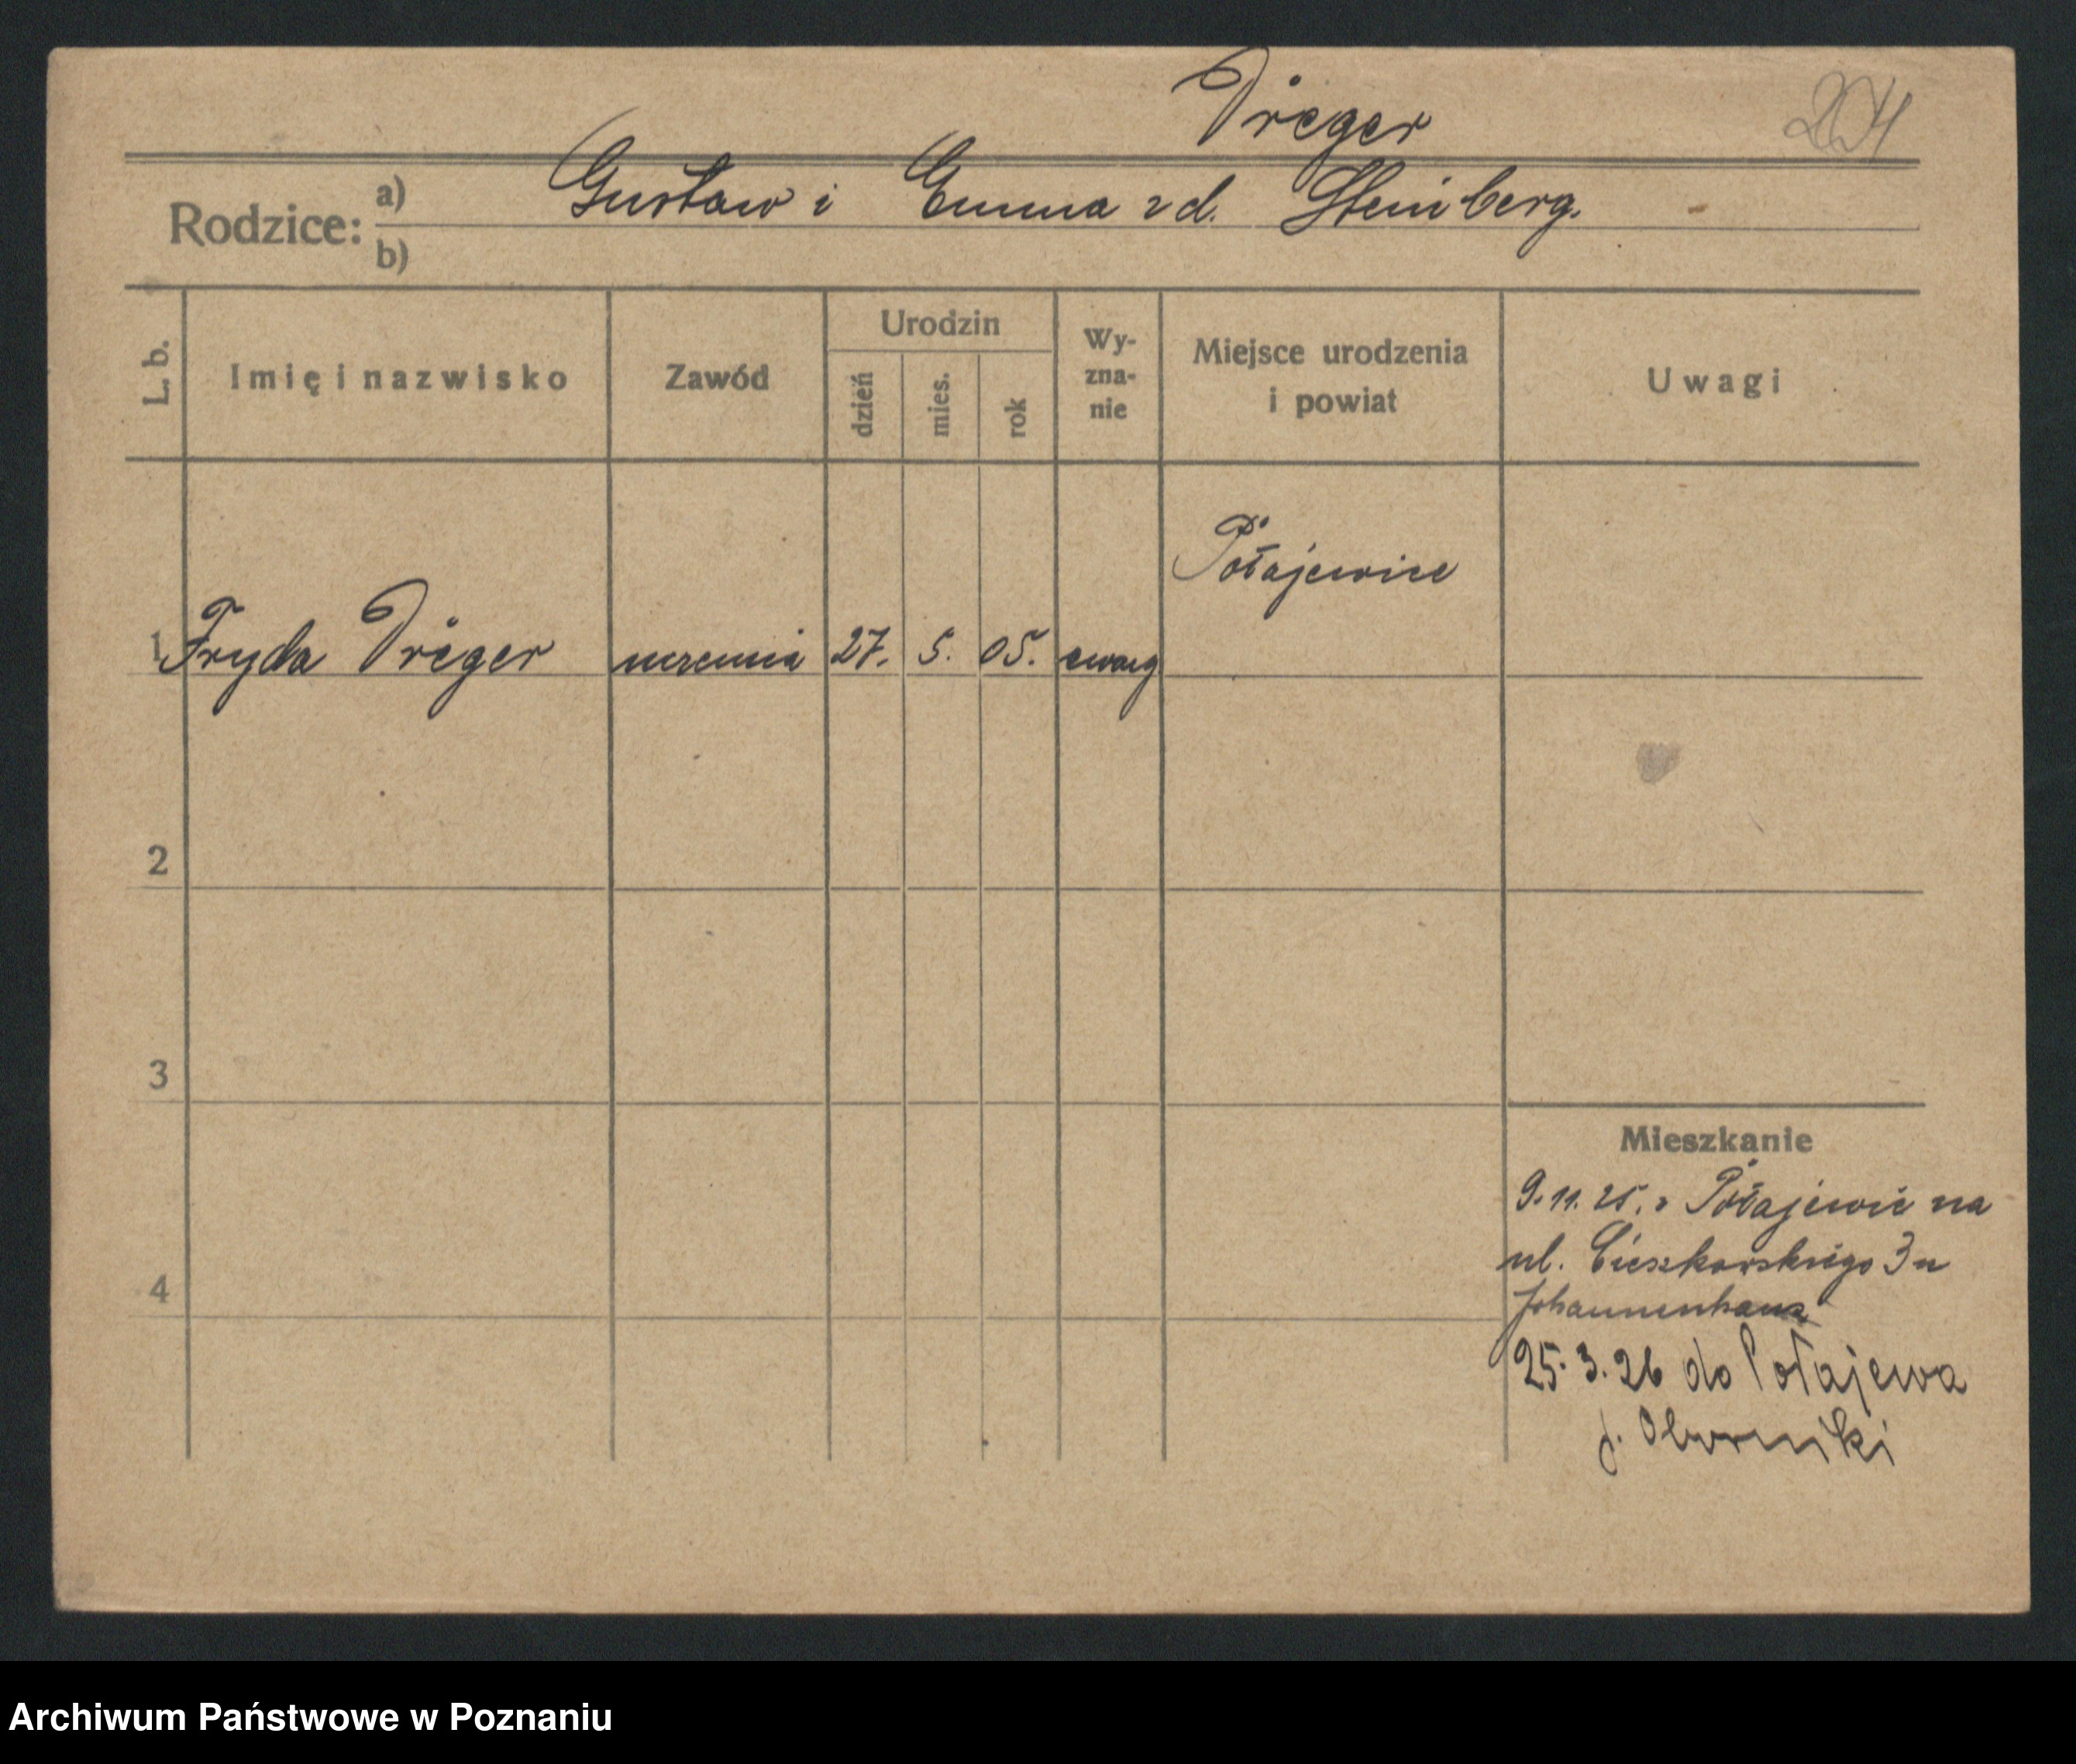 Dreger
204
Rodzice: a) Gustaw i Emma zd. Steinberg.
b)
L. b.
Imię i nazwisko
Zawód
Urodzin
dzień
mies.
rok
Wy-
zna-
nie
Miejsce urodzenia
i powiat
Uwagi
Połajewice
1 Fryda Dreger uczennia 27. 5. 05. ewang
2
3
4
Mieszkanie
9.11.25. z Połajewic na
ul. Cieszkowskiego 3 u
Johannenhaus
25.3.26 do Połajewa
p. Oborniki
Archiwum Państwowe w Poznaniu